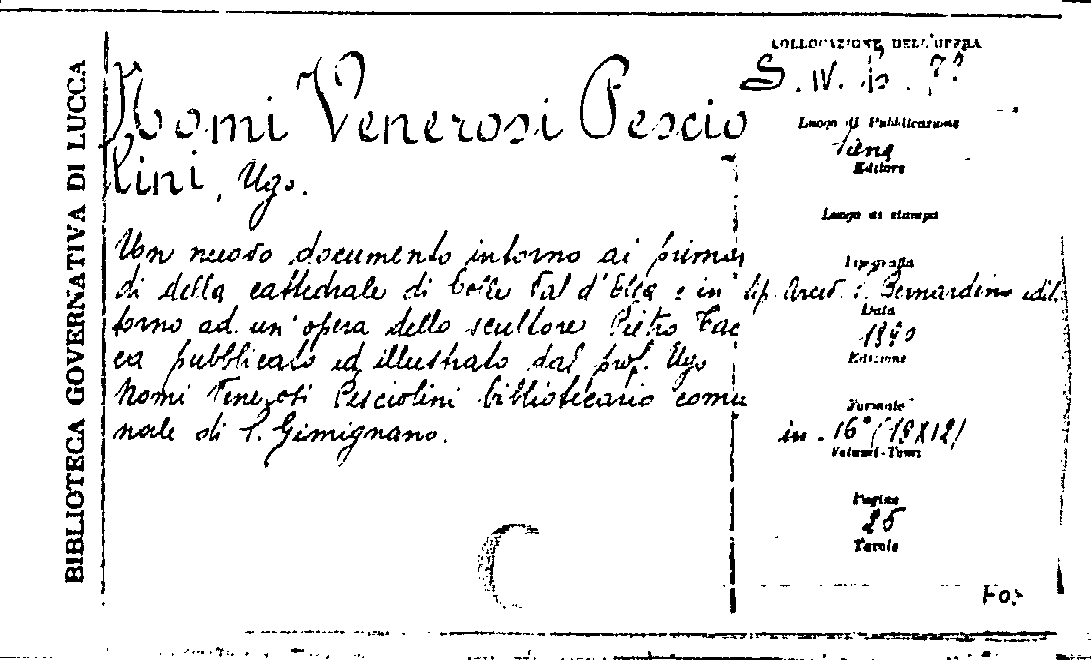 BIBLIOTECA GOVERNATIVA DI LUCCA
Nomi Venerosi Pescio
lini, Ugo.
Un nuovo documento intorno ai primor
di della cattedrale di Colle Val d'Elsa e in
torno ad un' opera dello scultore Pietro Tac
ca pubblicato ed illustrato dal prof. Ugo
Nomi Venerosi Pesciolini bibliotecario comu
nale di S. Gimignano.
COLLOCAZIONE DELL'OPERA
S. IV. b.
Luogo di Pubblicazione
Siena
Editore
Luogo di stampa
Tipografia
tip. Arciv. S. Bernardino edit.
Data
1890
Edizione
Formato
in-16° (19X12)
Volumi-Tomi
Pagine
25
Tavole